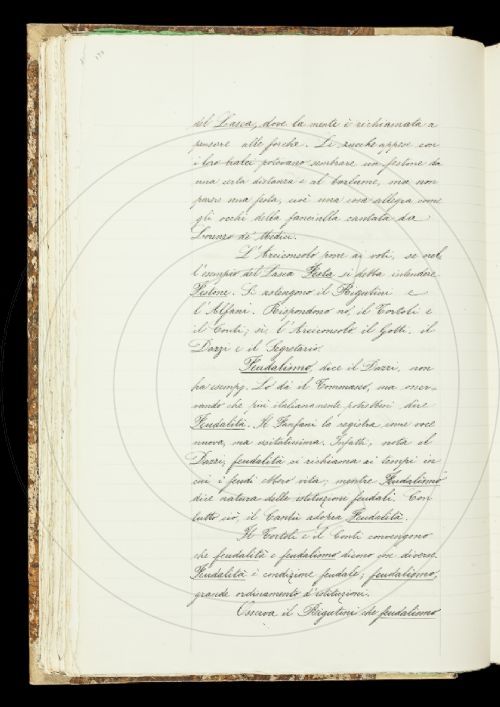 del Lasca, dove la mente è richiamata a
pensare alle forche. Le zucche appese con
i loro tralci potevano sembrare un festone da
una certa distanza e al barlume, ma non
parere una festa, cioè una cosa allegra come
gli occhi della fanciulla cantata da
Lorenzo de' Medici.
L'Arciconsolo pone ai voti, se nel-
l'esempio del Lasca Festa si debba intendere
Festone. Si astengono il Rigutini e
l'Alfani. Rispondono no, il Tortoli e
il Conti; sì: l'Arciconsolo il Gotti, il
Dazzi e il Segretario.
Feudalismo, dice il Dazzi, non
ha esempj. Lo dà il Tommaseo, ma osser-
vando che più italianamente potrebbesi dire
Feudalità. Il Fanfani la registra come voce
nuova, ma usitatissima. Infatti, nota il
Dazzi, feudalità si richiama ai tempi in
cui i feudi ebbero vita; mentre Feudalismo
dice natura delle istituzioni feudali. Con
tutto ciò, il Cantù adopra Feudalità.
Il Tortoli e il Conti convengono
che feudalità e feudalismo dicono cose diverse.
Feudalità è condizione feudale; feudalismo,
grande ordinamento d'istituzioni.
Osserva il Rigutini che feudalismo